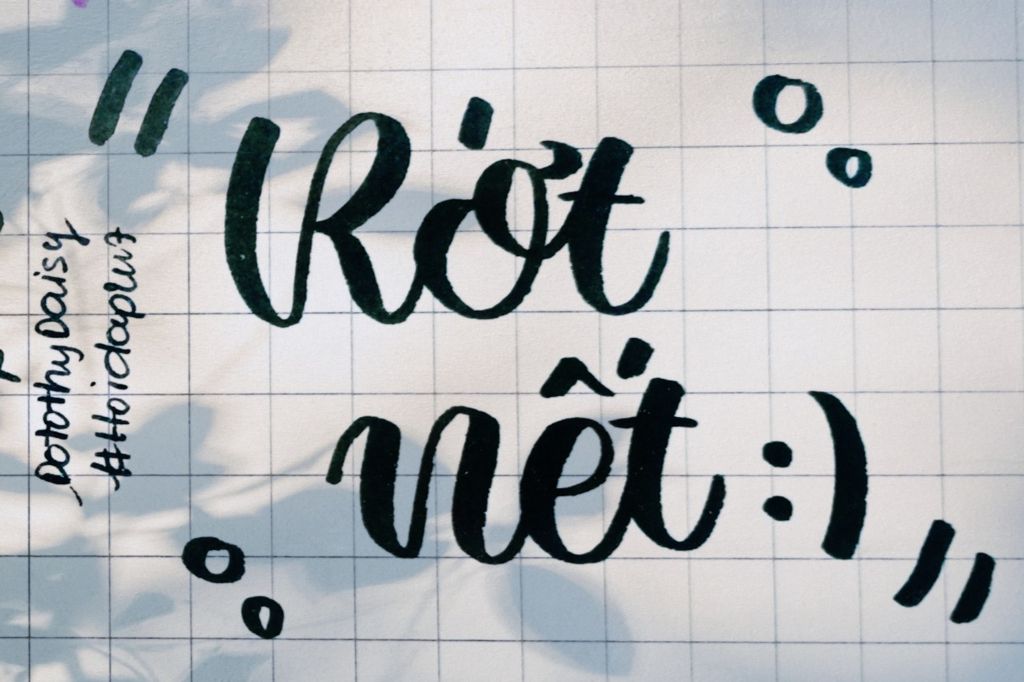 "Rớt
nết :)"
DotothyDaisy
#Hoidaplu7